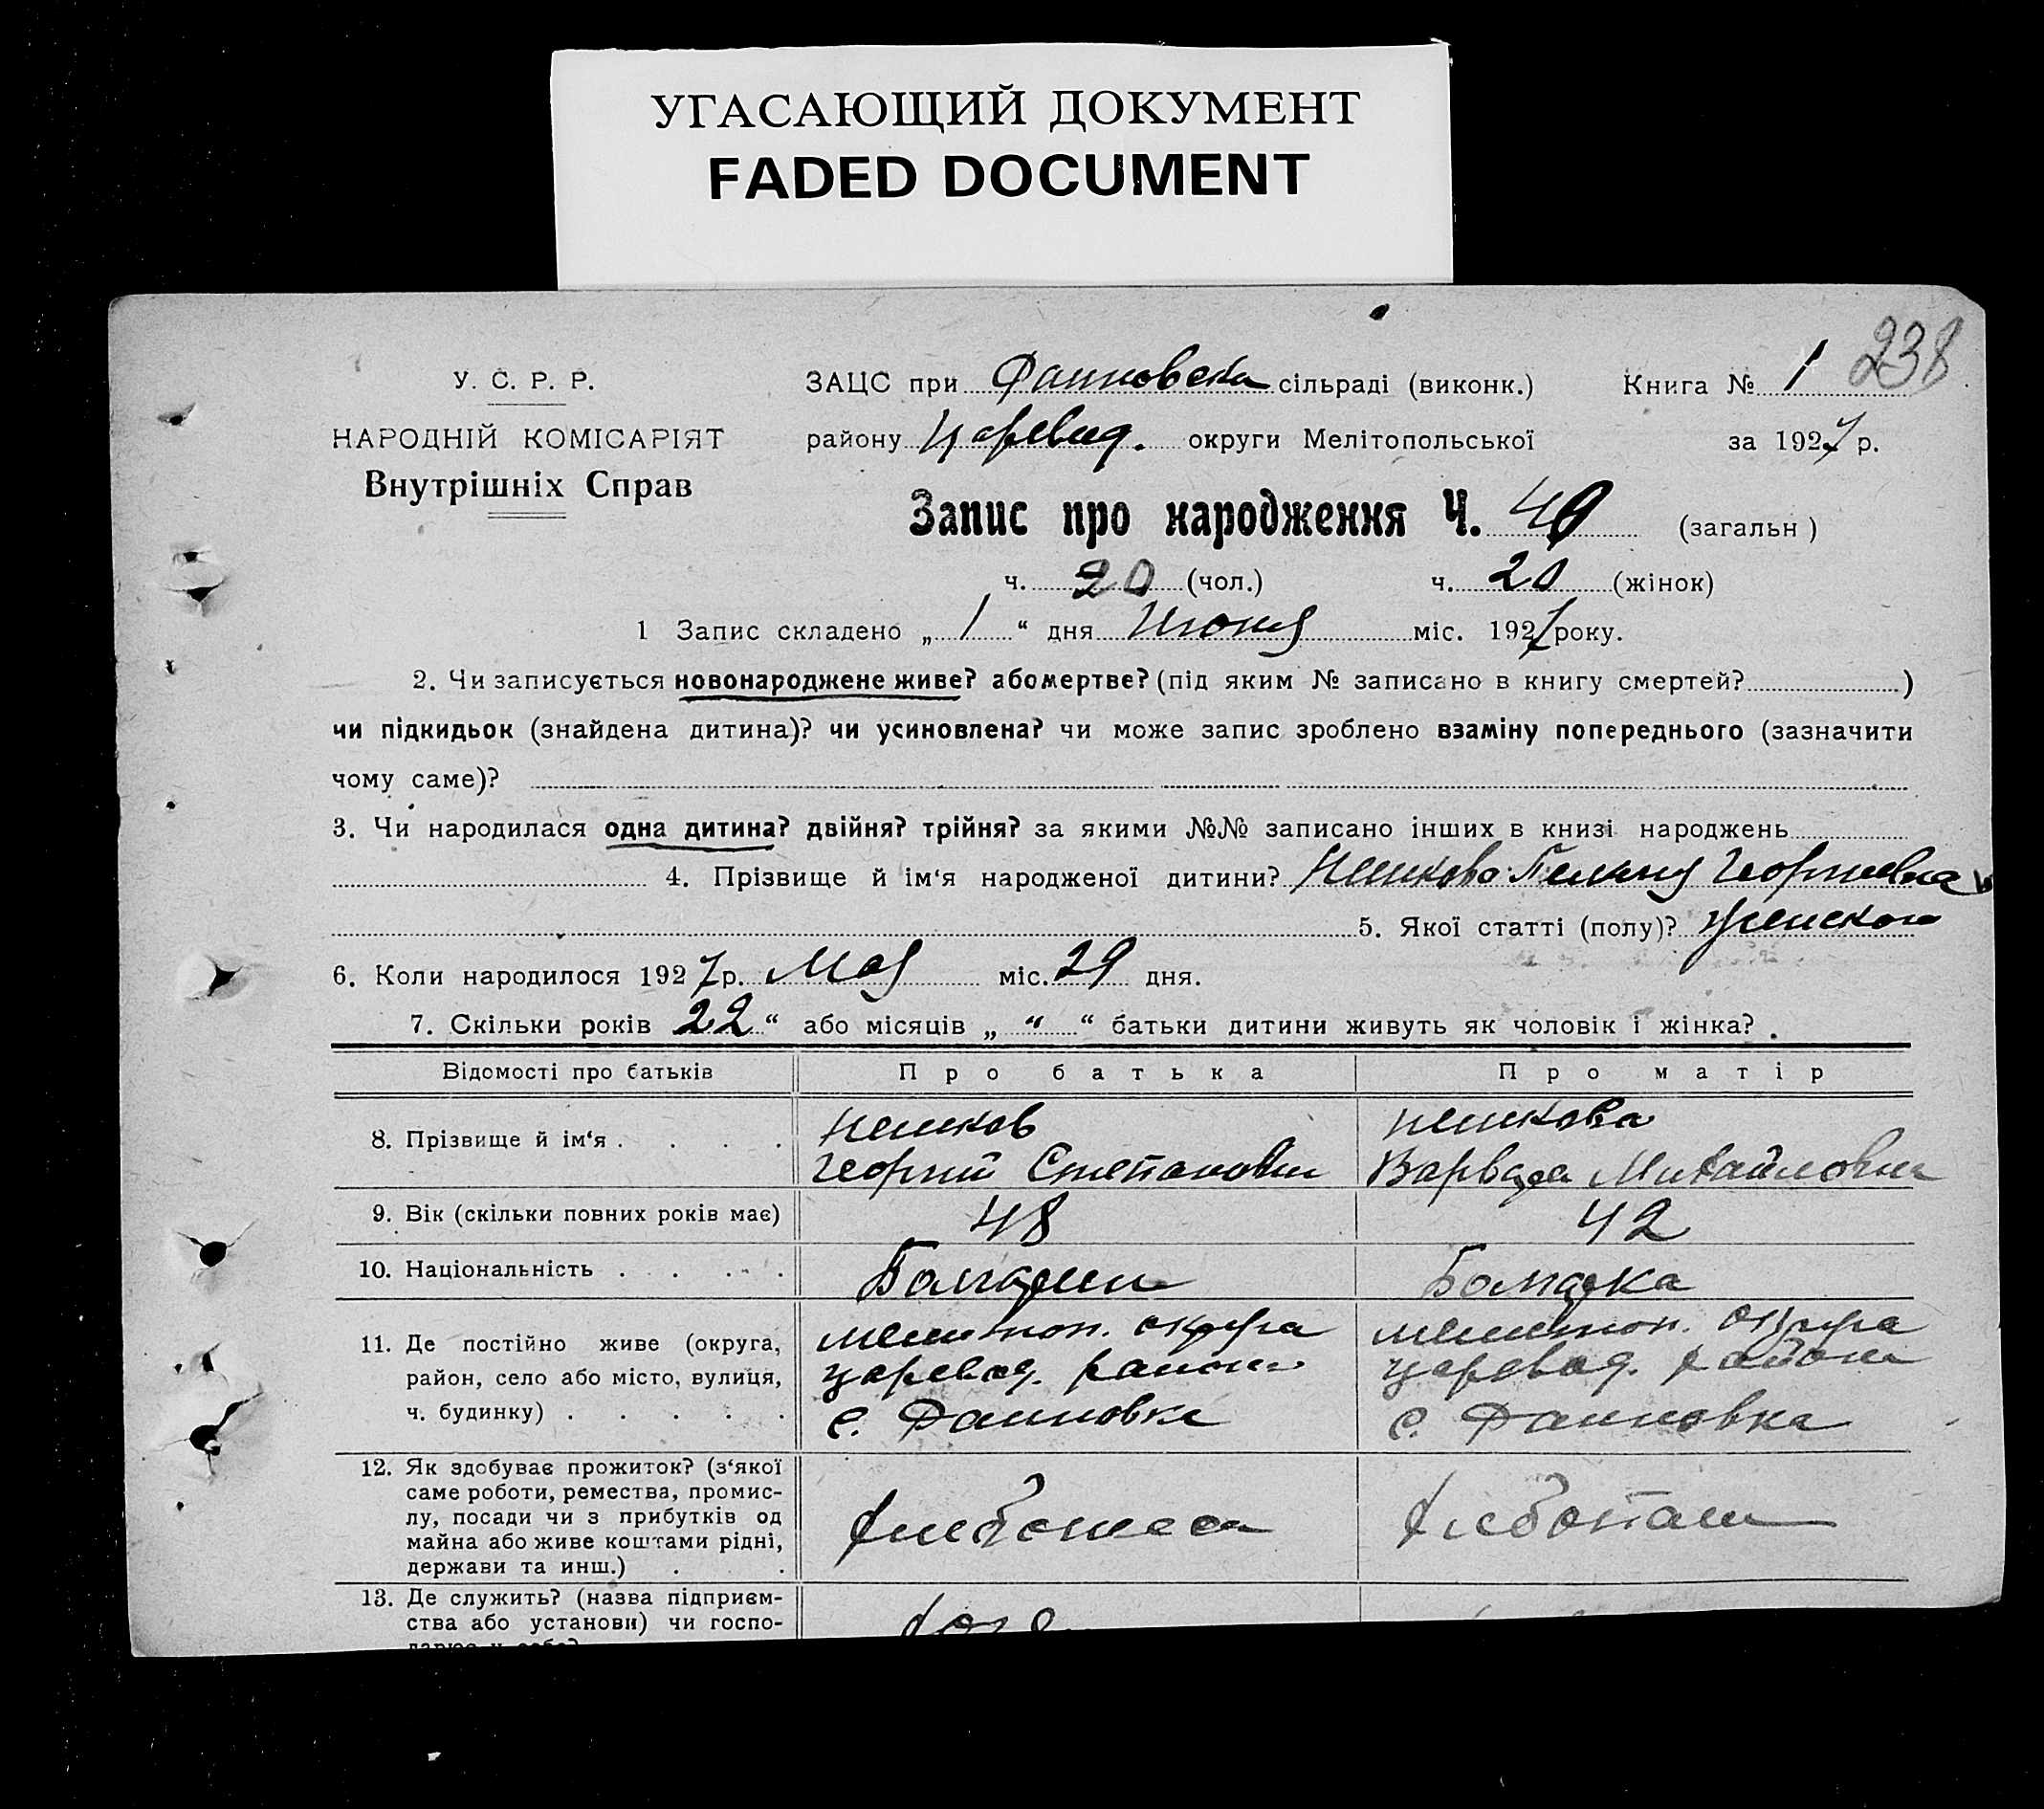 УГАСАЮЩИЙ ДОКУМЕНТ
FADED DOCUMENT
238
У. С. Р. Р.
НАРОДНІЙ КОМІСАРІЯТ
Внутрішніх Справ
ЗАЦС при сільраді (виконк.) Книга № 1
району Царевод. округи Мелітопольської за 1927 р.
Запис про народження Ч. 40 (загальн)
ч. 20 (чол.) ч. 20 (жінок)
1 Запис складено „ 1 “ дня Июня міс. 1927 року.
2. Чи записується новонароджене живе? або мертве? (під яким № записано в книгу смертей? )
чи підкидьок (знайдена дитина)? чи усиновлена? чи може запис зроблено взаміну попереднього (зазначити
чому саме)?
3. Чи народилася одна дитина? двійня? трійня? за якими №№ записано інших в книзі народжень
4. Прізвище й ім‘я народженої дитини? Георгиевна
5. Якої статті (полу)? женского
6. Коли народилося 1927 р. Мая міс. 29 дня.
7. Скільки років 22 “ або місяців „ “ “ батьки дитини живуть як чоловік і жінка?
Відомості про батьків Про батька Про матір
8. Прізвище й ім‘я . . . . Пешков Георгий Степанович Пешкова Варвара Михайловна
9. Вік (скільки повних років має) 48 42
10. Національність . . . . Болгарин Болгарка
11. Де постійно живе (округа,
район, село або місто, вулиця,
ч. будинку) . . . . .
мелитоп. округа
царевод. район
с.
мелитоп. округа
царевод. район
с.
12. Як здобуває прожиток? (з‘якої
саме роботи, ремества, промис-
лу, посади чи з прибутків од
майна або живе коштами рідні,
держави та инш.) . .
хлебопаш
13. Де служить? (назва підприєм-
ства або установи) чи госпо-